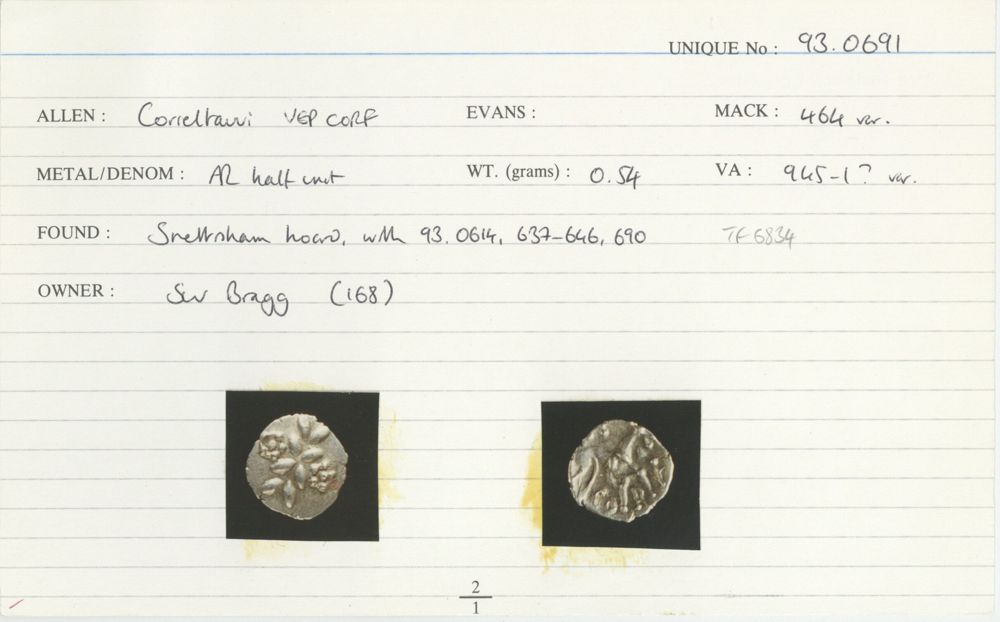 UNIQUE No : 93.0691
ALLEN : Corieltauvi VEP CORF EVANS : MACK : 464 var.
METAL/DENOM : AR half unit WT. (grams) : 0.54 VA : 945-1? var.
FOUND : Snettisham hoard, with 93.0614, 637-646, 690 TF 6834
OWNER : Bragg (168)
2
1